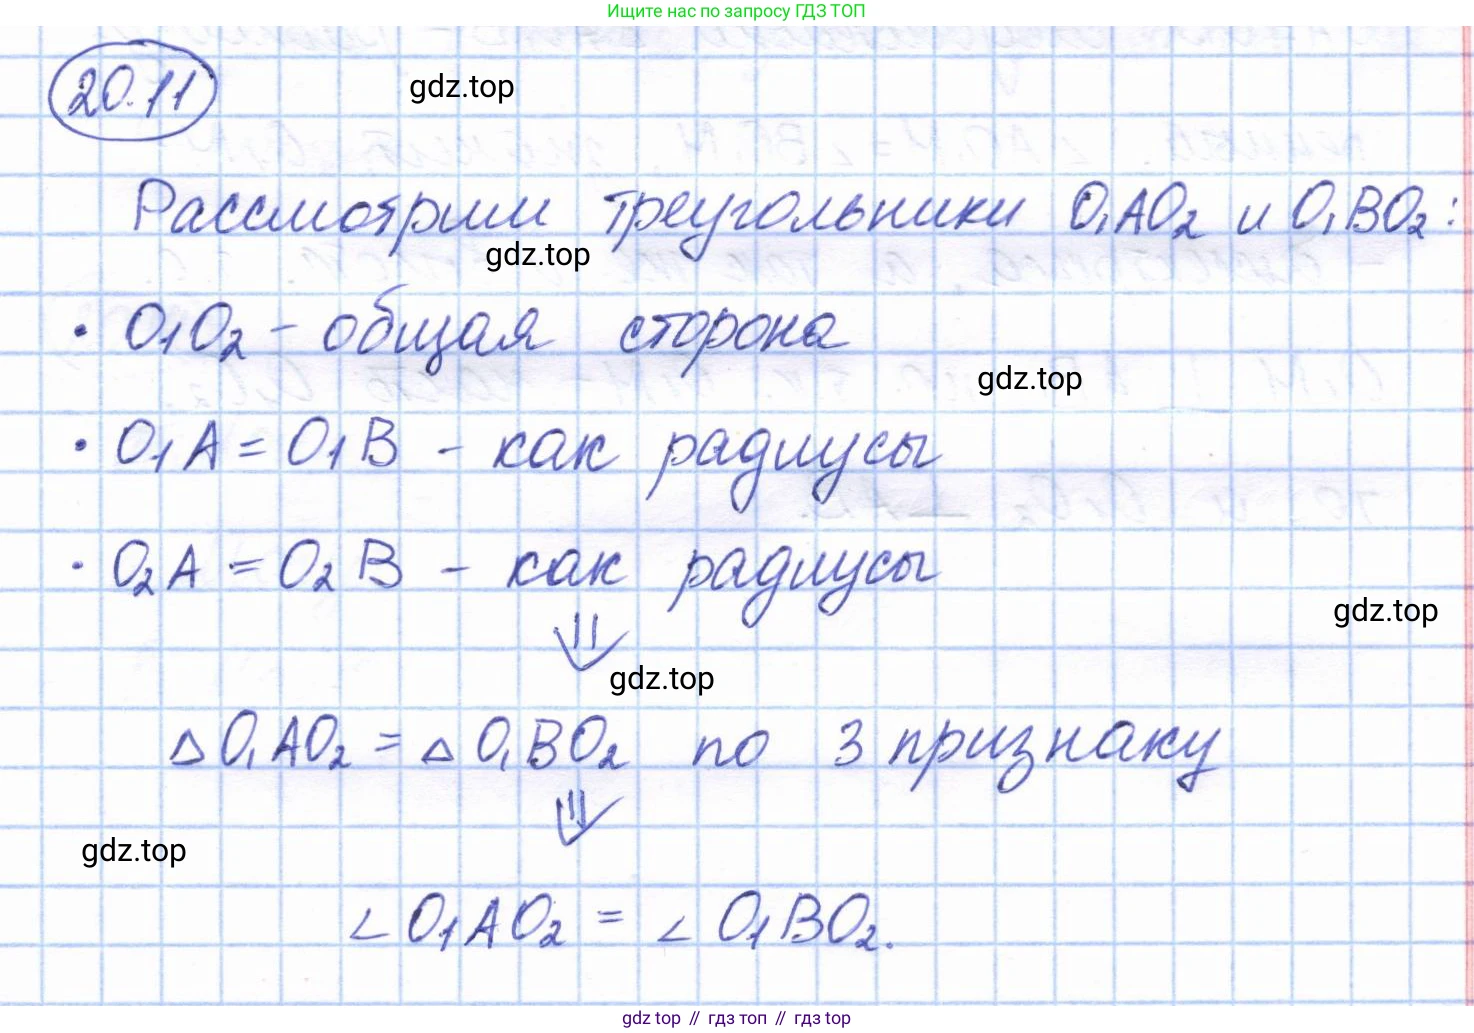 Ищите нас по запросу ГДЗ ТОП
20.11
gdz.top
Рассмотрим треугольники O₁AO₂ и O₁BO₂:
gdz.top
• O₁O₂ – общая сторона
gdz.top
• O₁A = O₁B – как радиусы
• O₂A = O₂B – как радиусы
gdz.top
⇓
gdz.top
△ O₁AO₂ = △ O₁BO₂ по 3 признаку
⇓
gdz.top
∠ O₁AO₂ = ∠ O₁BO₂.
gdz top // гдз топ // гдз top